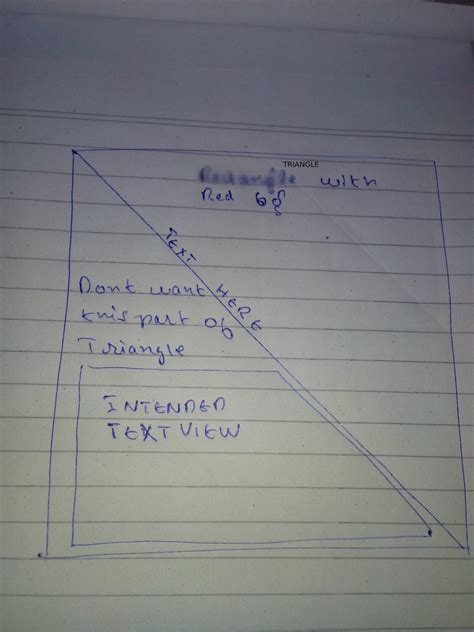 TRIANGLE
with
Red bg
TEXT HERE
Dont want
this part of
Triangle
INTENDED
TEXT VIEW